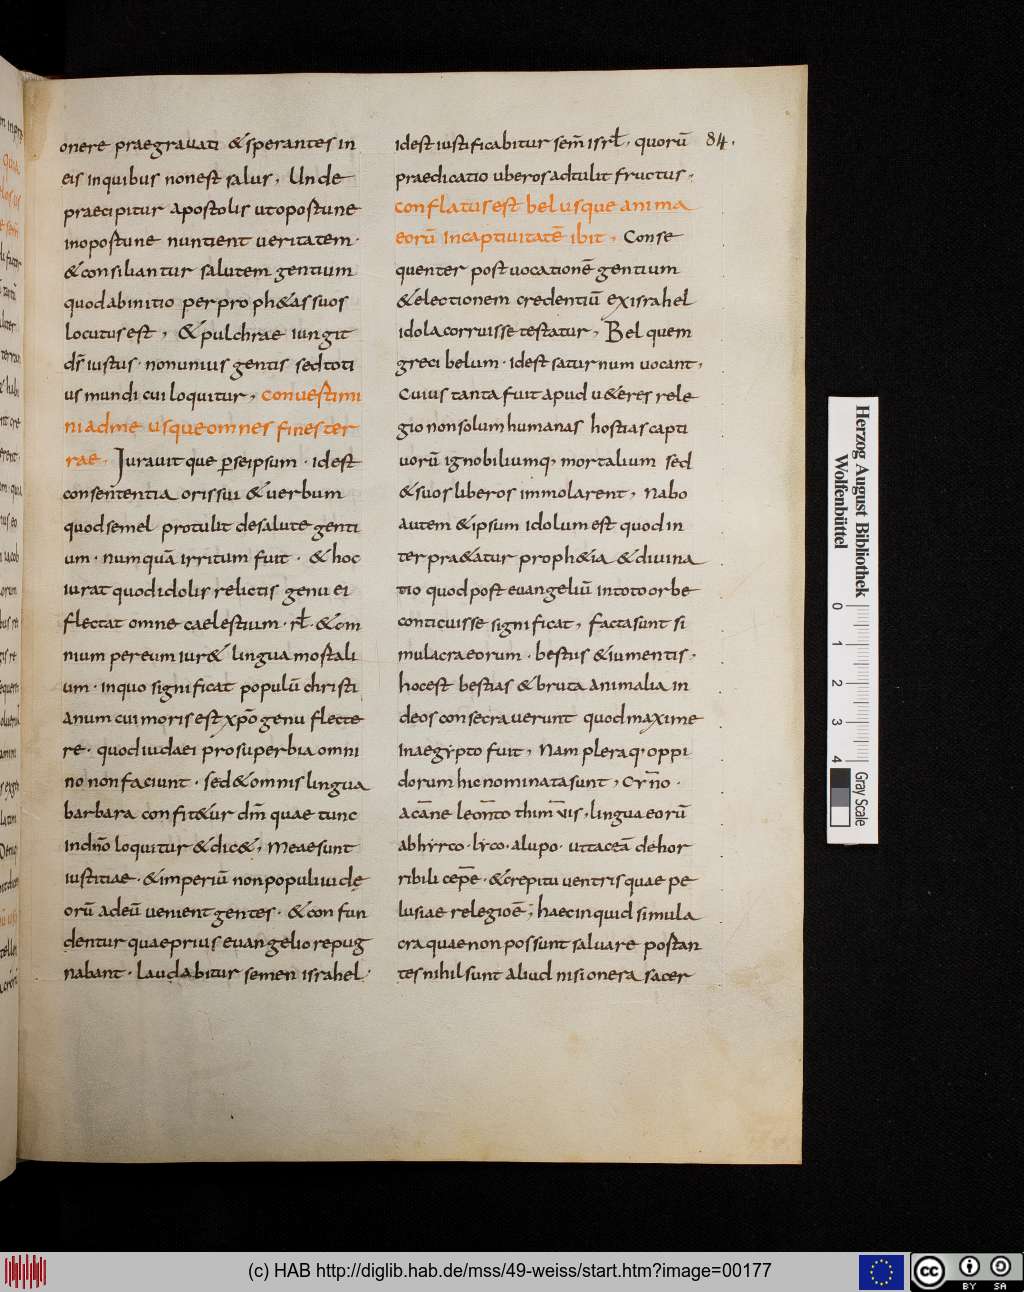 onere praegrauati & sperantes in
eis in quibus non est salus, Unde
praecipitur apostolis ut opostune
inopostune nuntient ueritatem.
& consiliantur salutem gentium
quod ab initio per proph&as suos
locutus est, & pulchrae iungit
d̄s iustus. non unius gentis sed toti
us mundi cui loquitur, conuestimi
ni ad me usque omnes fines ter
rae. Iurauit que ꝑ seipsum. idest
consententia oris sui & uerbum
quod semel protulit de salute genti
um. numquā irritum fuit. & hoc
iurat quod idolis relictis genu ei
flectat omne caelestium. rł. & om
nium per eum iur& lingua mostali
um. in quo significat populū christi
anum cui moris est xp̄o genu flecte
re. quod iudaei pro superbia omni
no non faciunt. sed & omnis lingua
barbara confit&ur dm̄ quae tunc
in dn̄o loquitur & dic&, Meae sunt
iustitiae. & imperiū non populi iudę
orū ad eū uenient gentes. & confun
dentur quae prius euangelio repug
nabant. laudabitur semen israhel.
idest iustificabitur sem̄ isrł, quorū
praedicatio uberos adtulit fructus,
conflatus est bel usque anima
eorū in captiuitatē ibit, Conse
quenter post uocationē gentium
& electionem credentiū ex israhel
idola corruisse testatur, Bel quem
greci belum. idest saturnum uocant,
Cuius tanta fuit apud u&eres rele
gio non solum humanas hostias capti
uorū ignobiliumq, mortalium sed
& suos liberos immolarent, Nabo
autem & ipsum idolum est quod in
terpra&atur proph&ia & diuina
tio quod post euangeliū in toto orbe
conticuisse significat, facta sunt si
mulacra eorum. bestiis & iumentis.
hoc est bestias & bruta animalia in
deos consecrauerunt quod maxime
in aegypto fuit, Nam pleraq, oppi
dorum hic nominata sunt, Cyr̄no.
a cāne leon̄to thim̄uis, lingua eorū
ab hyrco. lyco. a lupo. ut taceā de hor
ribili cepe. & crepitu uentris quae pe
lusiae relegioē; haec inquid simula
cra quae non possunt saluare postan
tes nihil sunt aliud nisi onera sacer
84.
Herzog August Bibliothek
Wolfenbüttel
0 1 2 3 4
Gray Scale
(c) HAB http://diglib.hab.de/mss/49-weiss/start.htm?image=00177
cc BY SA